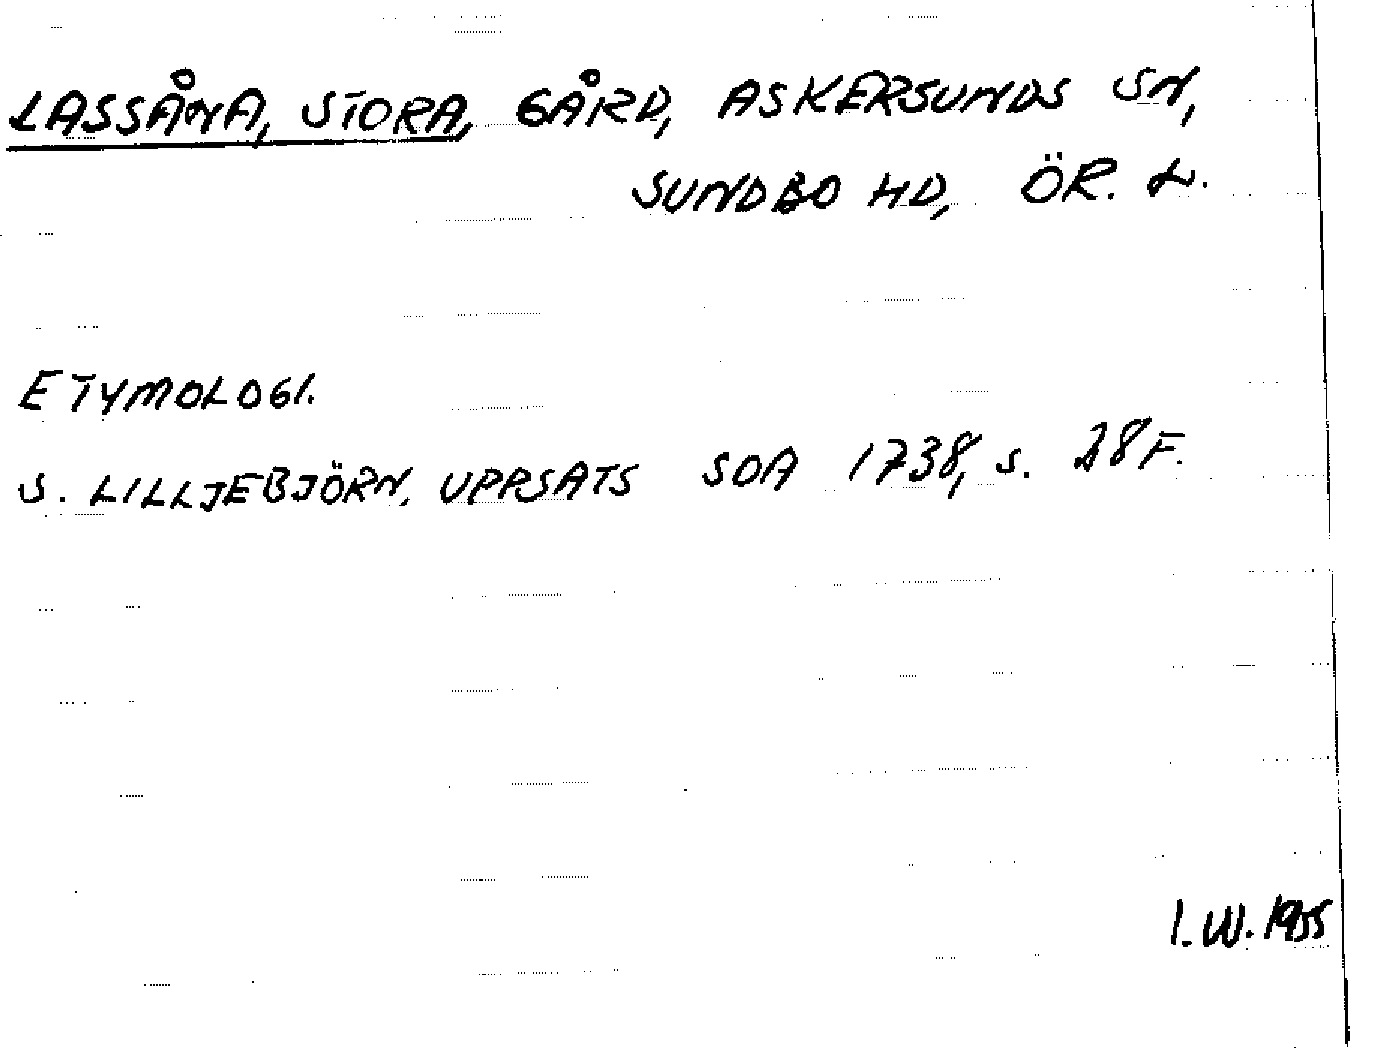 LASSÅNA, STORA, GÅRD, ASKERSUNDS SN,
SUNDBO HD, ÖR. L.
ETYMOLOGI.
S. LILLJEBJÖRN, UPPSATS SOA 1738, S. 28 F.
I. W. 1955